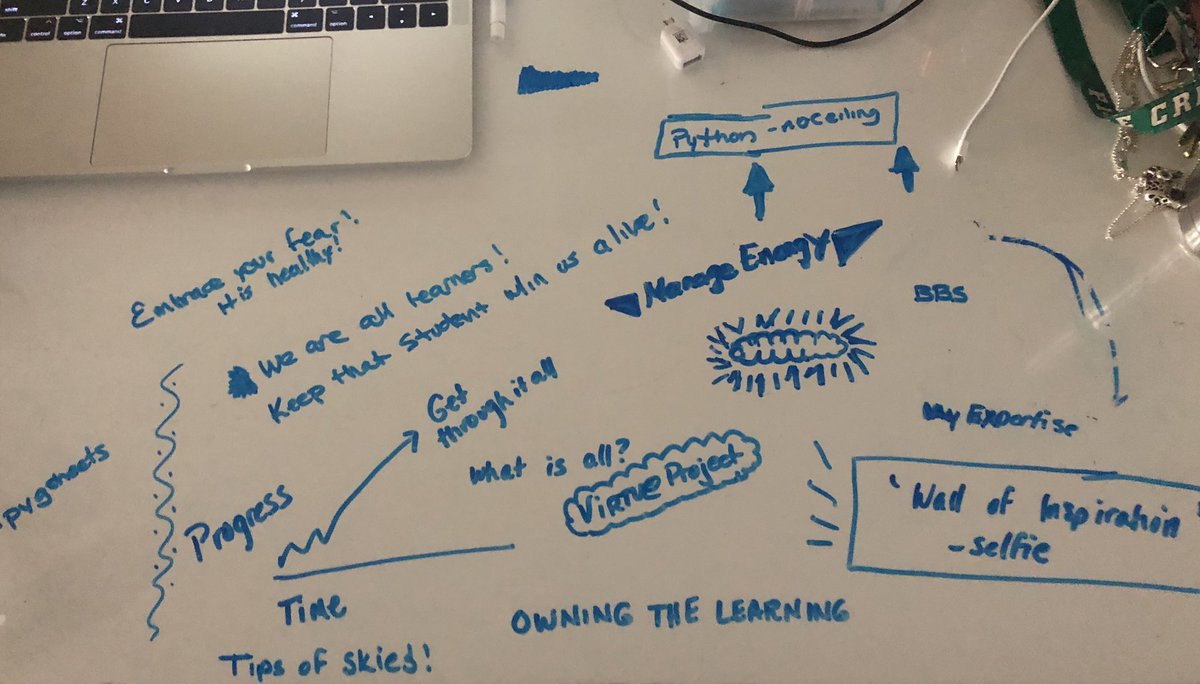 shift
Z X C V B N M
control option command
command option
CR
Python - noceiling
Embrace your fear!
It is healthy!
We are all learners!
Keep that student w/in us alive!
Manage Energy
BBS
Get
through it all
What is all?
Virtue Project
My Expertise
pygsheets
Progress
Time
"Wall of Inspiration"
- selfie
OWNING THE LEARNING
Tips of skies!